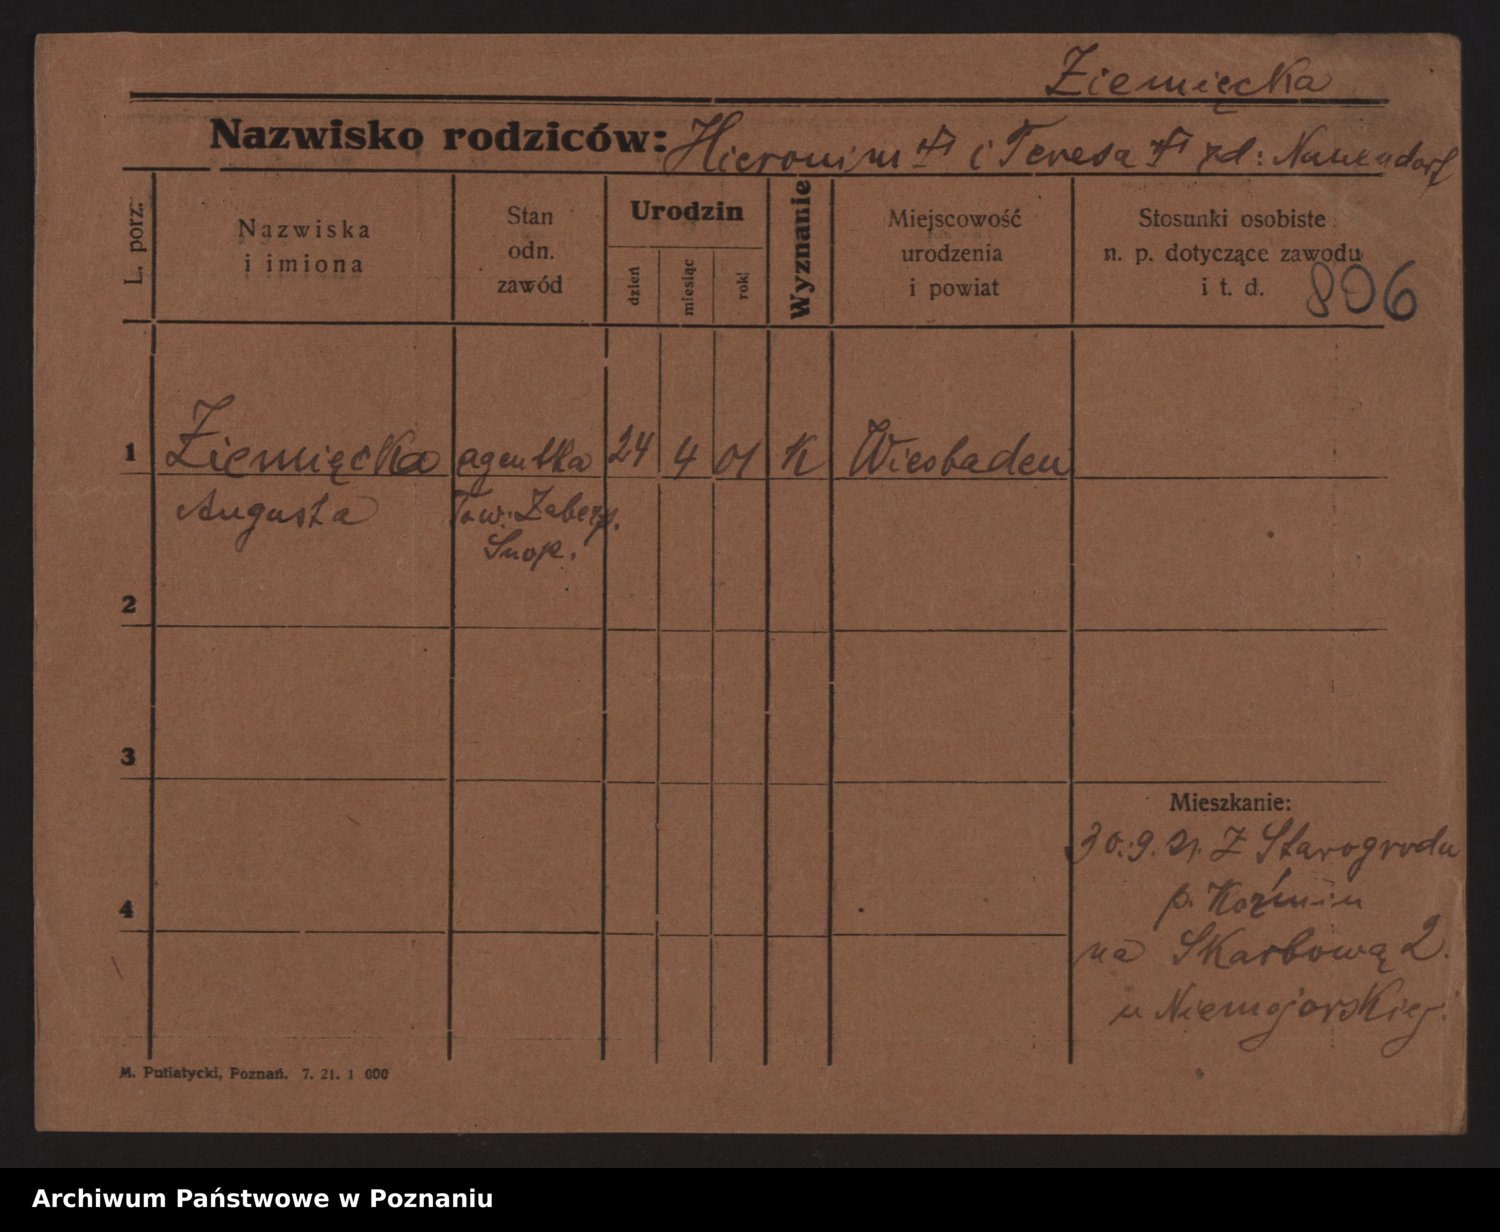 Ziemięcka
Nazwisko rodziców: Hieronim i Teresa zd: Nauendorf
L. porz.
Nazwiska
i imiona
Stan
odn.
zawód
Urodzin
dzień
miesiąc
rok
Wyznanie
Miejscowość
urodzenia
i powiat
Stosunki osobiste
n. p. dotyczące zawodu
i t. d.
806
1 Ziemięcka agentka 24 4 01 K Wiesbaden
Augusta Tow. Zabezp.
Snop.
2
3
Mieszkanie:
30.9.21. Z Starogrodu
p. Koźmin
4
na Skarbową 2.
u Niemojorskiej
M. Putiatycki, Poznań. 7. 21. 1 000
Archiwum Państwowe w Poznaniu